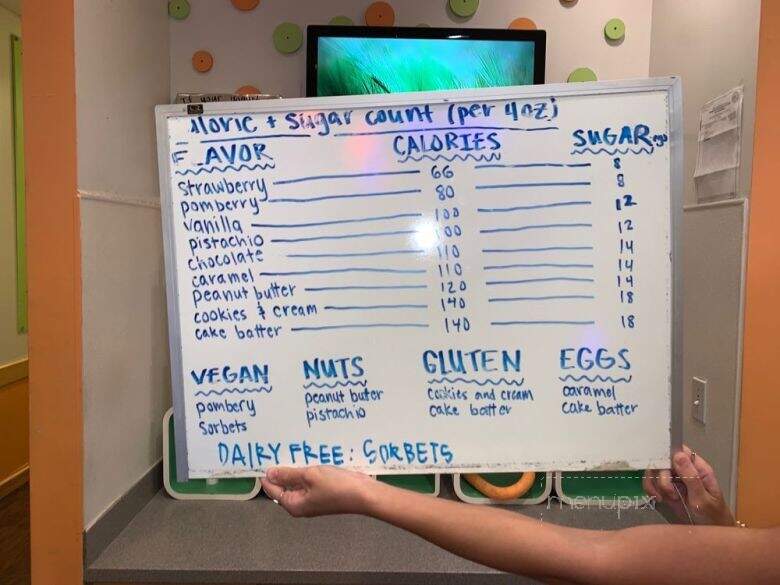 aloric + sugar count (per 4oz)
F_AVOR CALORIES SUGAR
strawberry 66 8
pomberry 80 8
vanilla 100 12
pistachio 100 12
chocolate 110 14
caramel 110 14
peanut butter 120 14
cookies & cream 140 18
cake batter 140 18
VEGAN NUTS GLUTEN EGGS
pombery peanut buter cookies and cream caramel
sorbets pistachio cake batter cake batter
DAIRY FREE: SORBETS
menupix